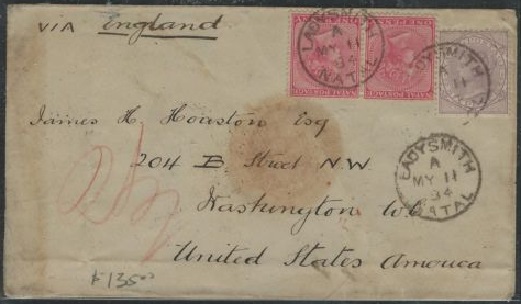 VIA England
LADYSMITH
A
MY 11
94
NATAL
LADYSMITH
A
11
NATAL POSTAGE
James H. Houston Esq
204 B Street N.W.
Washington
United States America
LADYSMITH
A
MY 11
94
NATAL
$135.00